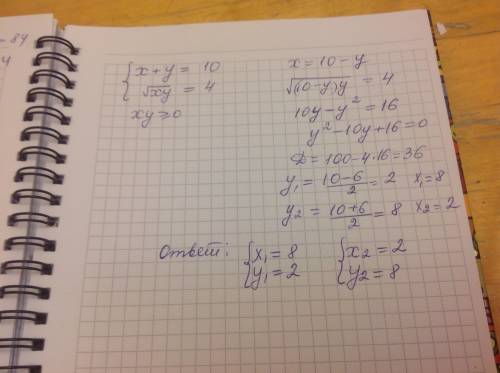 84
{ x + y = 10
√xy = 4
xy ⩾ 0
x = 10 - y
√(10-y)y = 4
10y - y² = 16
y² - 10y + 16 = 0
D = 100 - 4·16 = 36
y₁ = (10-6)/2 = 2 x₁ = 8
y₂ = (10+6)/2 = 8 x₂ = 2
Ответ: { x₁ = 8 { x₂ = 2
y₁ = 2 y₂ = 8